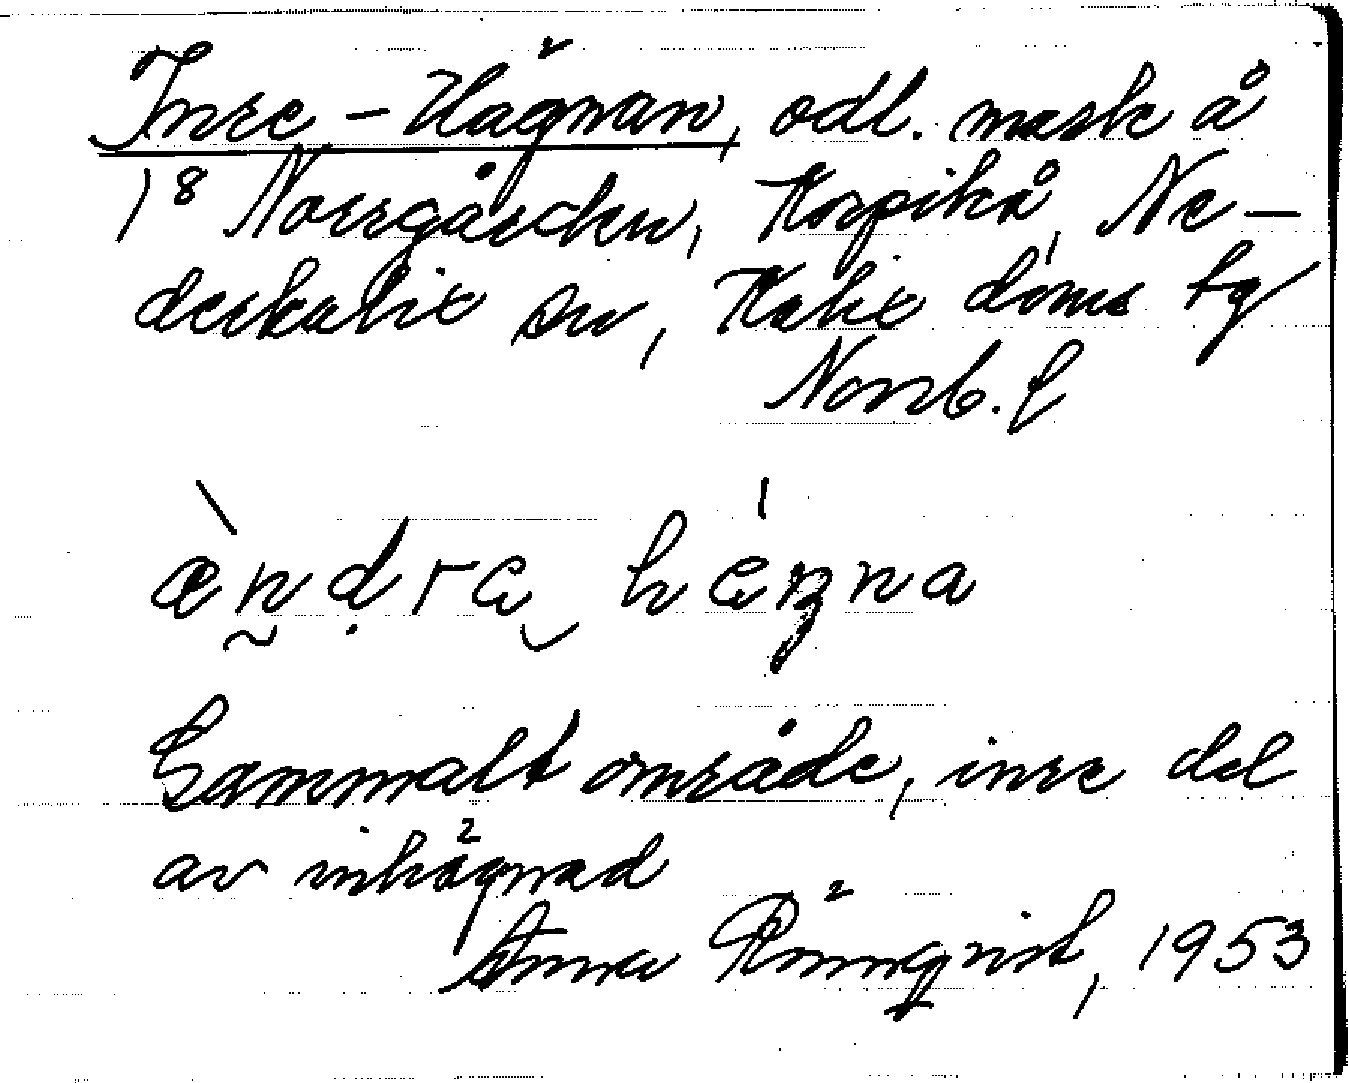 Inre-Hägnan, odl. mark å
1⁸ Norrgården, Korpikå, Ne-
derkalix sn, Kalix döms tg
Norrb. l
ændra hægna
Gammalt område, inre del
av inhägnad
Anna Rönnqvist, 1953